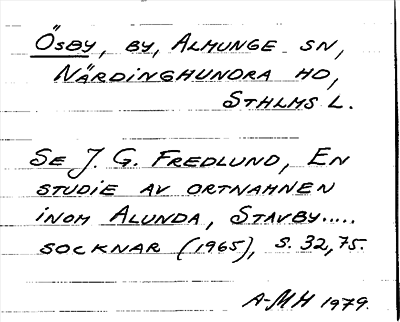 Ösby, by, Almunge sn,
Närdinghundra hd,
Sthlms l.
Se J. G. Fredlund, En
studie av ortnamnen
inom Alunda, Stavby.....
socknar (1965), s. 32, 75.
A-MH 1979.